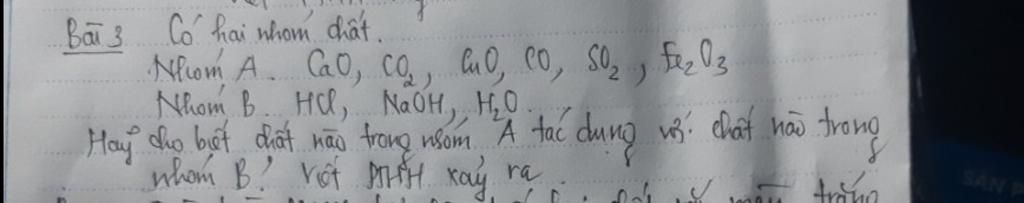 Bài 3 Có hai nhóm chất.
Nhóm A. CaO, CO2, CuO, CO, SO2, Fe2O3
Nhóm B. HCl, NaOH, H2O.
Hãy cho biết chất nào trong nhóm A tác dụng với chất nào trong
nhóm B. Viết PTHH xảy ra.
trắng
SẢN P